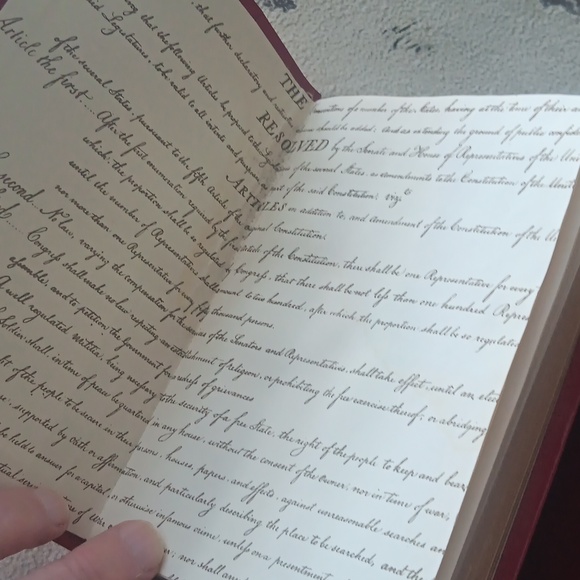 that further declaratory and
THE
numbers of the States, having at the time of their
should be added. And as extending the ground of public
RESOLVED by the Senate and House of Representatives of the
of the several States, as amendments to the Constitution of the
that the following Articles be proposed
said Legislatures, to be valid to all intents and
part of the said Constitution; vizt
ARTICLES in addition to, and Amendment of the Constitution of the
of the several States, pursuant to the fifth Article of the original Constitution.
Article the first... After the first enumeration required by the first article of the Constitution, there shall be one Representative for every
which, the proportion shall be so regulated by Congress, that there shall be not less than one hundred
until the number of Representatives shall amount to two hundred; after which the proportion shall be so
nor more than one Representative for every fifty thousand persons.
second... No law, varying the compensation for the services of the Senators and Representatives, shall take effect, until an
Congress shall make no law respecting an establishment of religion, or prohibiting the free exercise thereof; or abridging
assemble, and to petition the Government for a redress of grievances
A well regulated Militia, being necessary to the security of a free State, the right of the people to keep and bear
Soldier shall, in time of peace be quartered in any house, without the consent of the Owner, nor in time of war,
of the people to be secure in their persons, houses, papers, and effects, against unreasonable searches
supported by oath or affirmation, and particularly describing the place to be searched, and the
be held to answer for a capital, or otherwise infamous crime, unless on a presentment
of War
nor shall